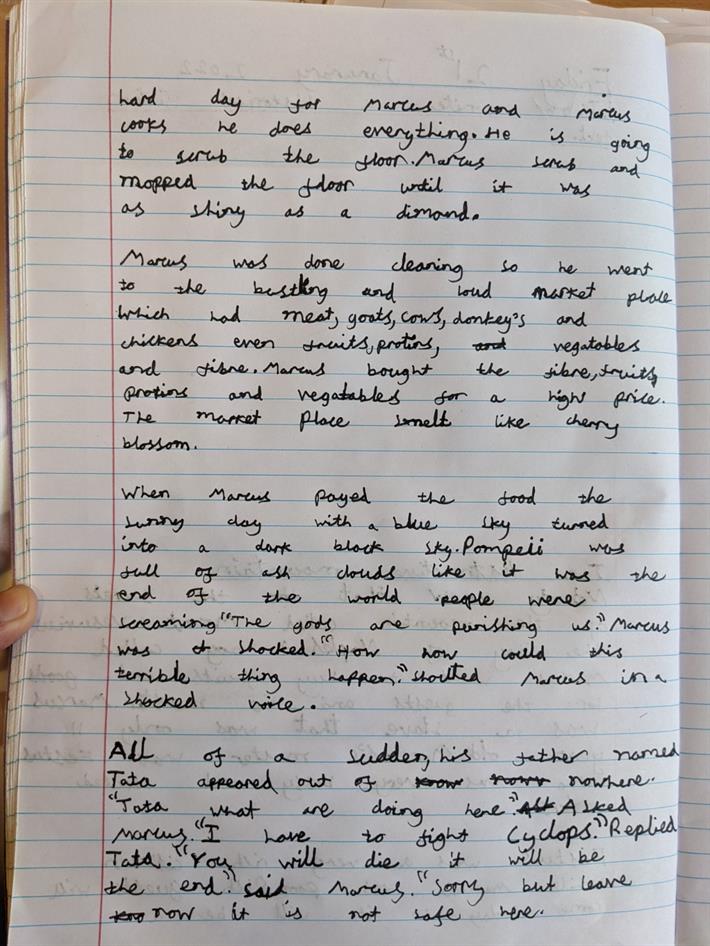 hard day for Marcus and Marcus
cooks he does everything. He is going
to scrub the floor. Marcus scrub and
mopped the fdoor until it was
as shiny as a dimand.
Marcus was done cleaning so he went
to the bustling and loud market place
which had meat, goats, cows, donkey's and
chickens even fruits, protins, and vegatables
and fibre. Marcus bought the fibre, fruits,
protins and vegatables for a high price.
The market place smelt like cherry
blossom.
When Marcus payed the food the
sunny day with a blue sky turned
into a dark black sky. Pompeii was
full of ash clouds like it was the
end of the world people were
screaming "The gods are punishing us." Marcus
was shocked. "How now could this
terrible thing happen." shouted Marcus in a
shocked voice.
All of a sudden, his father named
Tata appeared out of know nowr nowhere.
"Tata what are doing here." Ask Asked
Marcus. "I have to fight Cyclops." Replied
Tata. "You will die it will be
the end." said Marcus. "Sorry but leave
kno now it is not safe here.